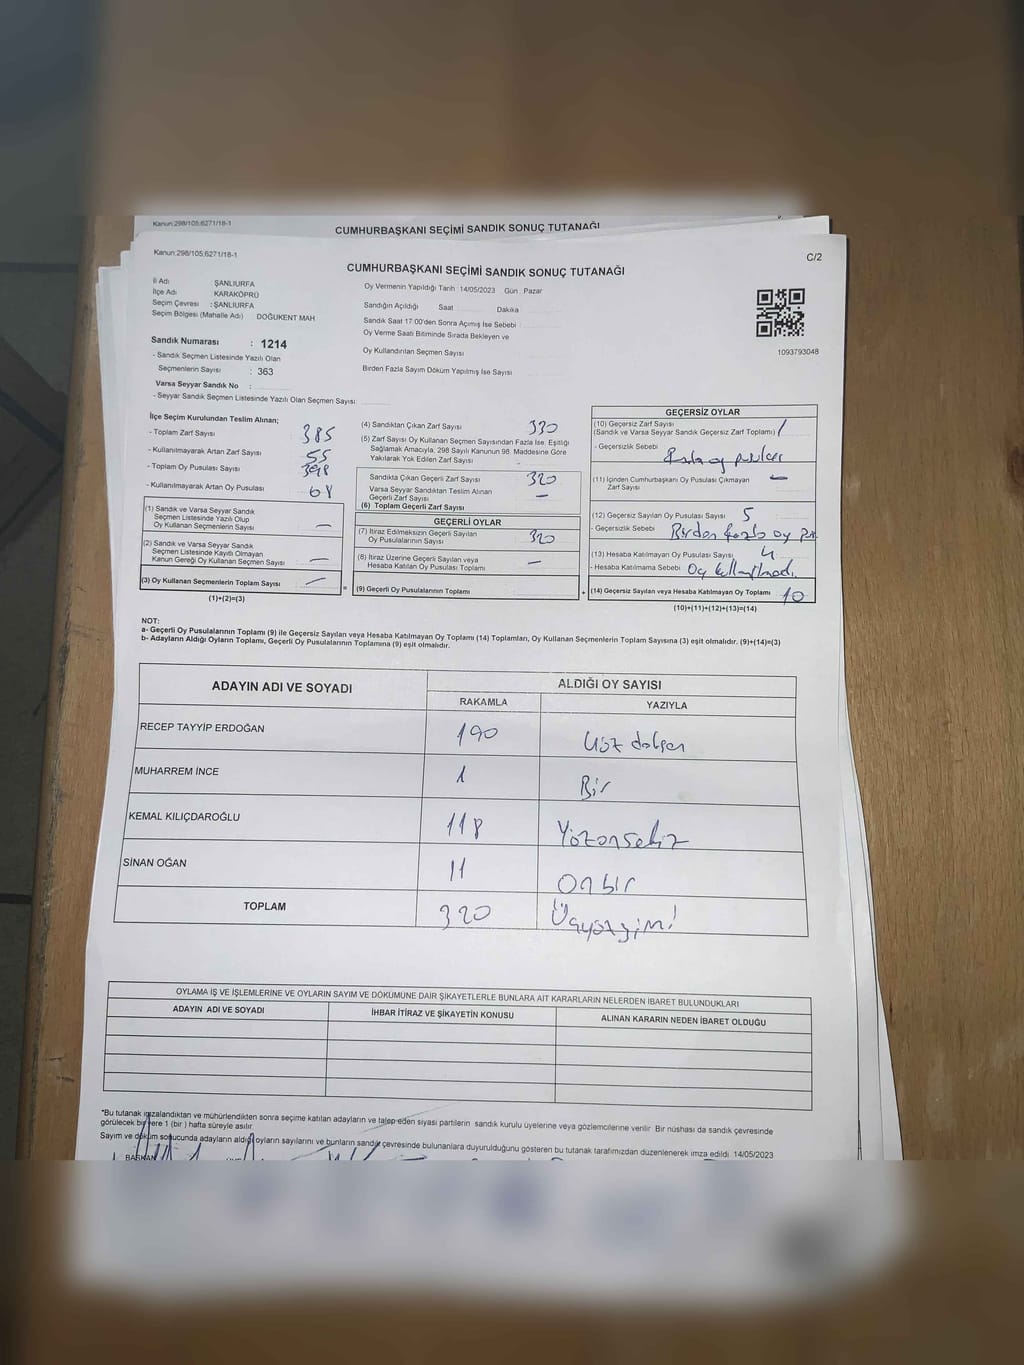 Kanun:298/105;6271/18-1
CUMHURBAŞKANI SEÇİMİ SANDIK SONUÇ TUTANAĞI
Kanun:298/105;6271/18-1
C/2
CUMHURBAŞKANI SEÇİMİ SANDIK SONUÇ TUTANAĞI
İl Adı ŞANLIURFA
İlçe Adı KARAKÖPRÜ
Seçim Çevresi : ŞANLIURFA
Seçim Bölgesi (Mahalle Adı) DOĞUKENT MAH.
Sandık Numarası : 1214
- Sandık Seçmen Listesinde Yazılı Olan
Seçmenlerin Sayısı : 363
Varsa Seyyar Sandık No :
- Seyyar Sandık Seçmen Listesinde Yazılı Olan Seçmen Sayısı:
Oy Vermenin Yapıldığı Tarih : 14/05/2023 Gün : Pazar
Sandığın Açıldığı Saat Dakika
Sandık Saat 17:00'den Sonra Açımış İse Sebebi :
Oy Verme Saati Bitiminde Sırada Bekleyen ve
Oy Kullandırılan Seçmen Sayısı
Birden Fazla Sayım Döküm Yapılmış İse Sayısı
1093793048
İlçe Seçim Kurulundan Teslim Alınan;
- Toplam Zarf Sayısı 385
- Kullanılmayarak Artan Zarf Sayısı 55
- Toplam Oy Pusulası Sayısı 398
- Kullanılmayarak Artan Oy Pusulası 68
(1) Sandık ve Varsa Seyyar Sandık
Seçmen Listesinde Yazılı Olup
Oy Kullanan Seçmenlerin Sayısı —
(2) Sandık ve Varsa Seyyar Sandık
Seçmen Listesinde Kayıtlı Olmayan
Kanun Gereği Oy Kullanan Seçmen Sayısı —
(3) Oy Kullanan Seçmenlerin Toplam Sayısı —
(1)+(2)=(3)
(4) Sandıktan Çıkan Zarf Sayısı 330
(5) Zarf Sayısı Oy Kullanan Seçmen Sayısından Fazla İse, Eşitliği
Sağlamak Amacıyla, 298 Sayılı Kanunun 98. Maddesine Göre
Yakılarak Yok Edilen Zarf Sayısı
Sandıkta Çıkan Geçerli Zarf Sayısı 320
Varsa Seyyar Sandıktan Teslim Alınan
Geçerli Zarf Sayısı —
(6) Toplam Geçerli Zarf Sayısı
GEÇERLİ OYLAR
(7) İtiraz Edilmeksizin Geçerli Sayılan
Oy Pusulalarının Sayısı 320
(8) İtiraz Üzerine Geçerli Sayılan veya
Hesaba Katılan Oy Pusulası Toplamı —
= (9) Geçerli Oy Pusulalarının Toplamı +
GEÇERSİZ OYLAR
(10) Geçersiz Zarf Sayısı
(Sandık ve Varsa Seyyar Sandık Geçersiz Zarf Toplamı) 1
- Geçersizlik Sebebi oy pusulası
(11) İçinden Cumhurbaşkanı Oy Pusulası Çıkmayan
Zarf Sayısı —
(12) Geçersiz Sayılan Oy Pusulası Sayısı 5
- Geçersizlik Sebebi Birden fazla oy
(13) Hesaba Katılmayan Oy Pusulası Sayısı 4
- Hesaba Katılmama Sebebi Oy kullanılmadı.
(14) Geçersiz Sayılan veya Hesaba Katılmayan Oy Toplamı 10
(10)+(11)+(12)+(13)=(14)
NOT:
a- Geçerli Oy Pusulalarının Toplamı (9) ile Geçersiz Sayılan veya Hesaba Katılmayan Oy Toplamı (14) Toplamları, Oy Kullanan Seçmenlerin Toplam Sayısına (3) eşit olmalıdır. (9)+(14)=(3)
b- Adayların Aldığı Oyların Toplamı, Geçerli Oy Pusulalarının Toplamına (9) eşit olmalıdır.
ADAYIN ADI VE SOYADI
ALDIĞI OY SAYISI
RAKAMLA YAZIYLA
RECEP TAYYİP ERDOĞAN 190 Yüz doksan
MUHARREM İNCE 1 Bir
KEMAL KILIÇDAROĞLU 118 Yüzonsekiz
SİNAN OĞAN 11 Onbir
TOPLAM 320 Üçyüzyirmi
OYLAMA İŞ VE İŞLEMLERİNE VE OYLARIN SAYIM VE DÖKÜMÜNE DAİR ŞİKAYETLERLE BUNLARA AİT KARARLARIN NELERDEN İBARET BULUNDUKLARI
ADAYIN ADI VE SOYADI İHBAR İTİRAZ VE ŞİKAYETİN KONUSU ALINAN KARARIN NEDEN İBARET OLDUĞU
*Bu tutanak imzalandıktan ve mühürlendikten sonra seçime katılan adayların ve talep eden siyasi partilerin sandık kurulu üyelerine veya gözlemcilerine verilir. Bir nüshası da sandık çevresinde
görülecek bir yere 1 (bir) hafta süreyle asılır.
Sayım ve döküm sonucunda adayların aldığı oyların sayılarını ve bunların sandık çevresinde bulunanlara duyurulduğunu gösteren bu tutanak tarafımızdan düzenlenerek imza edildi. 14/05/2023
BAŞKAN